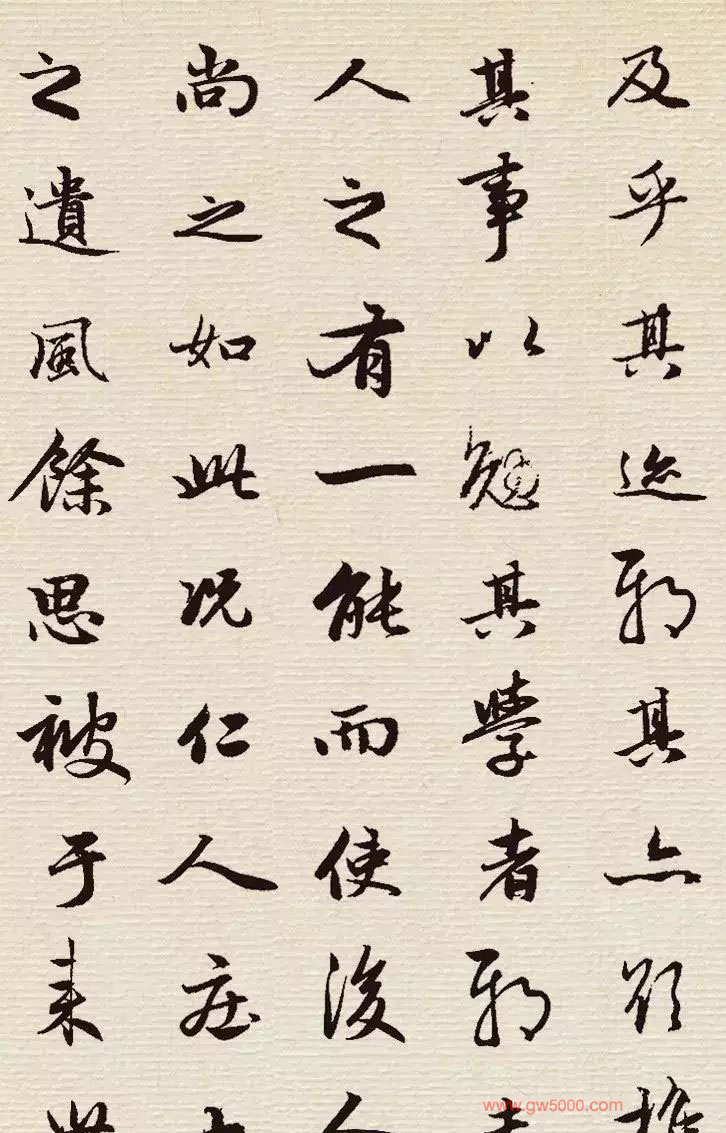 及乎其迹邪其亦欲推
其事以勉其學者邪
人之有一能而使後人
尚之如此况仁人庄
之遺風餘思被于来
www.gw5000.com